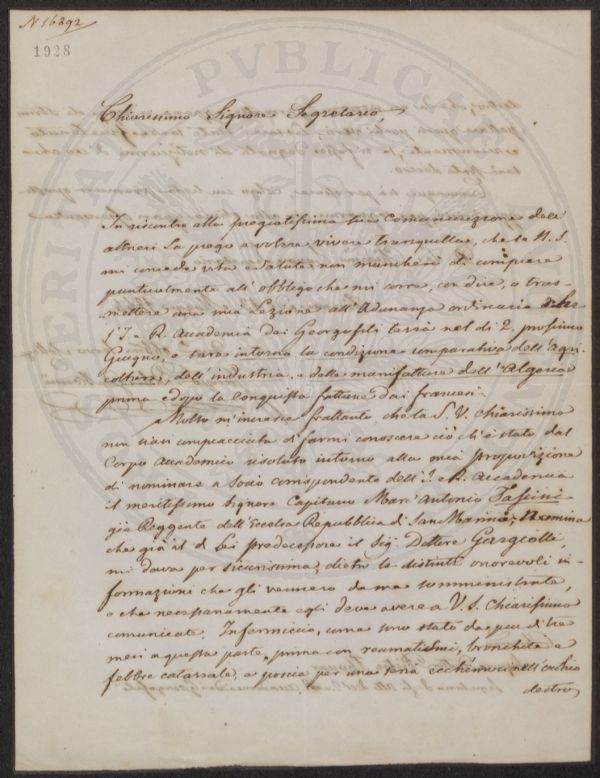 N 16892
1928
PVBLICAE
Chiarissimo Signore Segretario,
In riscontro alla pregiatissima sua Comunicazione dell'
altrieri La prego a volere vivere tranquilla, che se N. S.
mi concede vita e salute non mancherò di compiere
puntualmente all'obbligo che mi corre, con dire, o tras-
mettere una mia Lezione all'Adunanza ordinaria che
l'I. e R. Accademia dei Georgofili terrà nel dì 2. prossimo
Giugno, e sarà intorno la condizione comparativa dell'Agri-
coltura, dell'industria, e delle manifatture dell'Algeria
prima e dopo la Conquista fattane dai francesi.
Molto m'incresce frattanto che la S. V. Chiarissima
non siasi compiacciuta di farmi conoscere ciò ch'è stato dal
Corpo Accademico risoluto intorno alla mia proposizione
di nominare a Socio corrispondente dell'I. e R. Accademia
il meritissimo Signore Capitano Marc'Antonio
già Reggente dell'eccelsa Repubblica di San Marino; Nomina
che già il di Lei predecessore il Sig. Dottore
mi dava per sicurissima, dietro le distinte onorevoli in-
formazioni che gli vennero da me somministrate,
e che necessariamente egli deve avere a V. S. Chiarissima
comunicate. Infermiccio, come sono stato da più di tre
mesi a questa parte, prima con reumatismi, bronchite e
febbre catarrale, e poscia per una seria ecchimosi nell'occhio
destro,